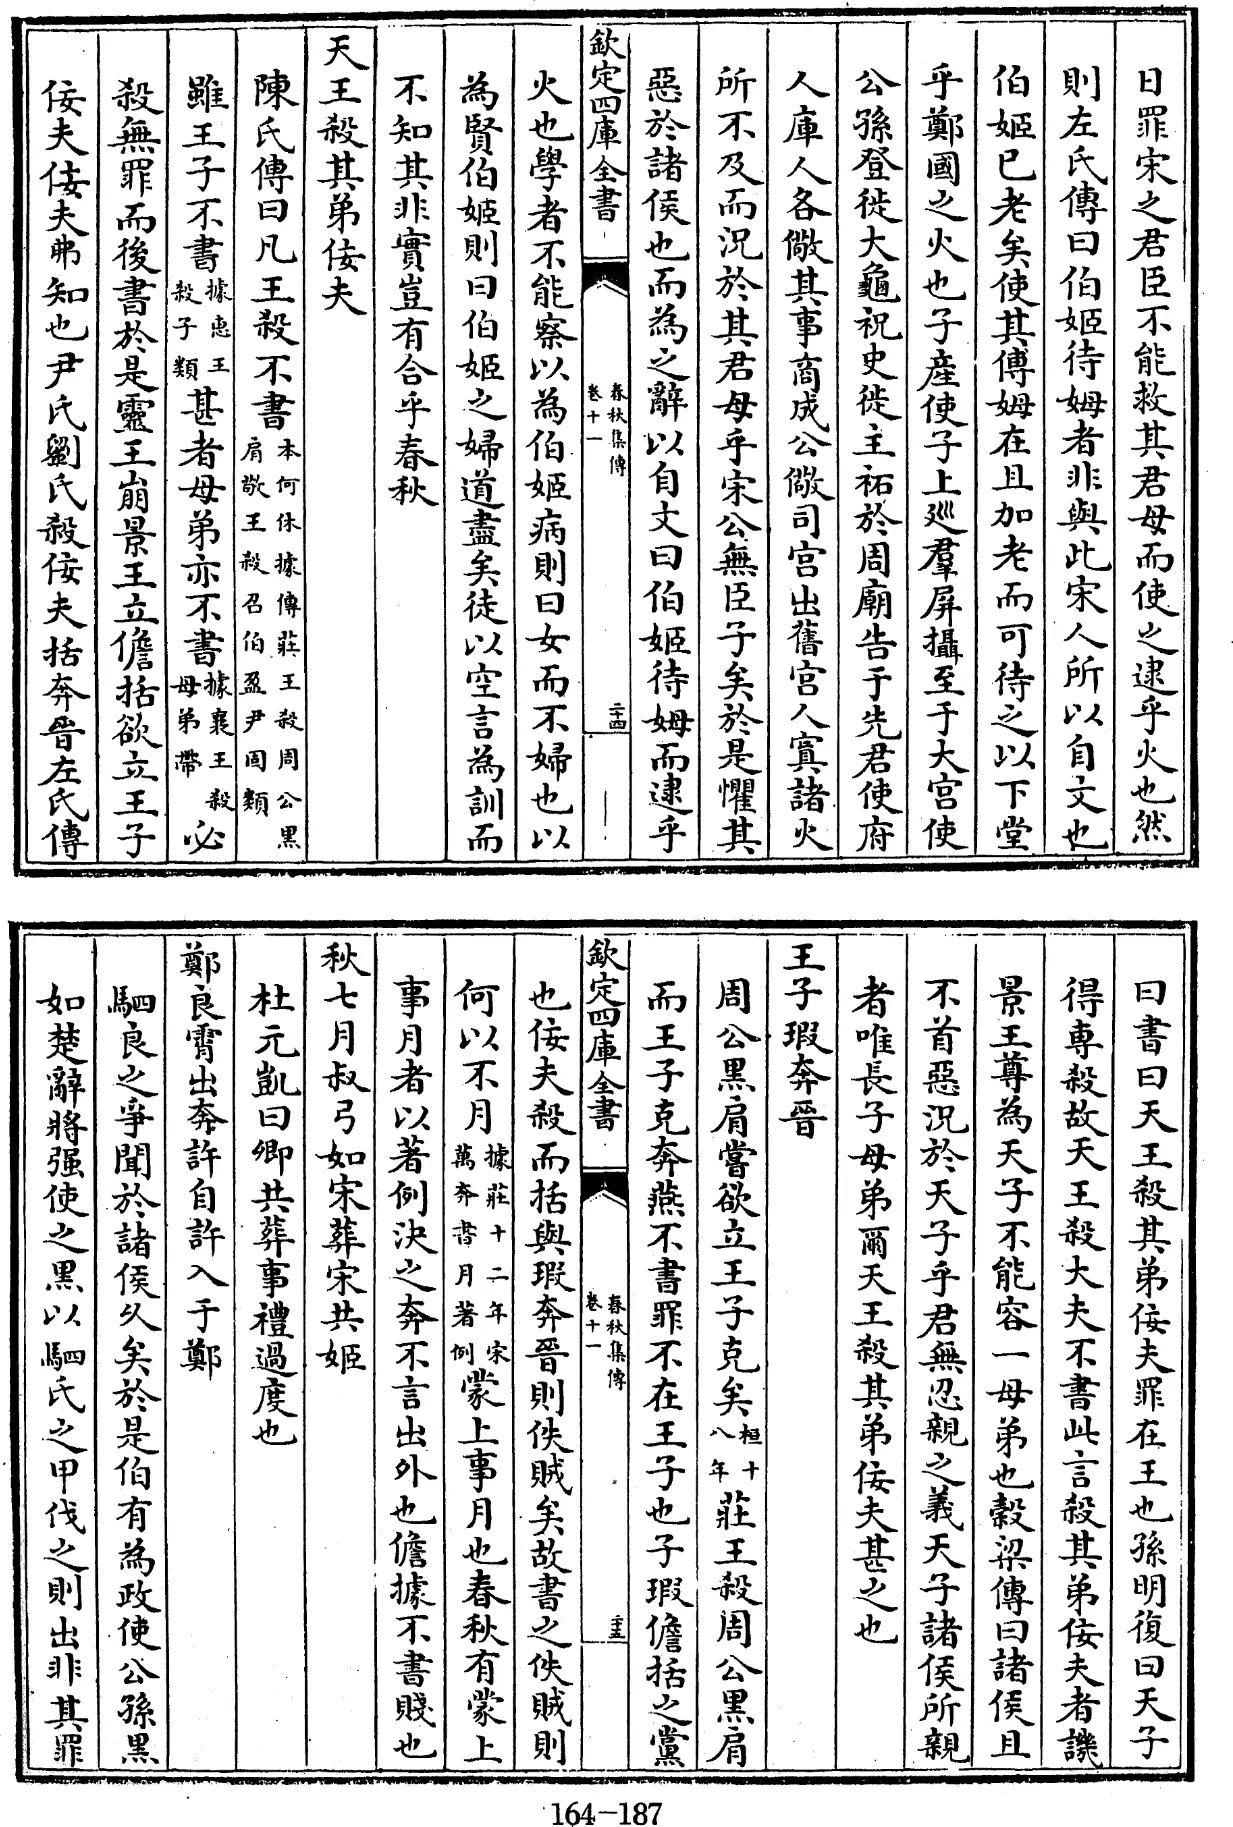 曰罪宋之君臣不能救其君母而使之逮乎火也然
則左氏傳曰伯姬待姆者非與此宋人所以自文也
伯姬已老矣使其傅姆在且加老而可待之以下堂
乎鄭國之火也子產使子上廵羣屏攝至于大宮使
公孫登徙大龜祝史徙主祏於周廟告于先君使府
人庫人各儆其事商成公儆司宮出舊宮人寘諸火
所不及而況於其君母乎宋公無臣子矣於是懼其
惡於諸侯也而為之辭以自文曰伯姬待姆而逮乎
欽定四庫全書
春秋集傳
卷十一
二十四
火也學者不能察以為伯姬病則曰女而不婦也以
為賢伯姬則曰伯姬之婦道盡矣徒以空言為訓而
不知其非實豈有合乎春秋
天王殺其弟佞夫
陳氏傳曰凡王殺不書本何休據傳莊王殺周公黑肩敬王殺召伯盈尹固類
雖王子不書據惠王殺子類甚者母弟亦不書據襄王殺母弟帶必
殺無罪而後書於是靈王崩景王立儋括欲立王子
佞夫佞夫弗知也尹氏劉氏殺佞夫括奔晉左氏傳
曰書曰天王殺其弟佞夫罪在王也孫明復曰天子
得專殺故天王殺大夫不書此言殺其弟佞夫者譏
景王尊為天子不能容一母弟也穀梁傳曰諸侯且
不首惡況於天子乎君無忍親之義天子諸侯所親
者唯長子母弟爾天王殺其弟佞夫甚之也
王子瑕奔晉
周公黑肩嘗欲立王子克矣桓十八年莊王殺周公黑肩
而王子克奔燕不書罪不在王子也子瑕儋括之黨
欽定四庫全書
春秋集傳
卷十一
二十五
也佞夫殺而括與瑕奔晉則佚賊矣故書之佚賊則
何以不月據莊十二年宋萬奔書月著例蒙上事月也春秋有蒙上
事月者以著例決之奔不言出外也儋據不書賤也
秋七月叔弓如宋葬宋共姬
杜元凱曰卿共葬事禮過度也
鄭良霄出奔許自許入于鄭
駟良之爭聞於諸侯久矣於是伯有為政使公孫黑
如楚辭將强使之黑以駟氏之甲伐之則出非其罪
164-187